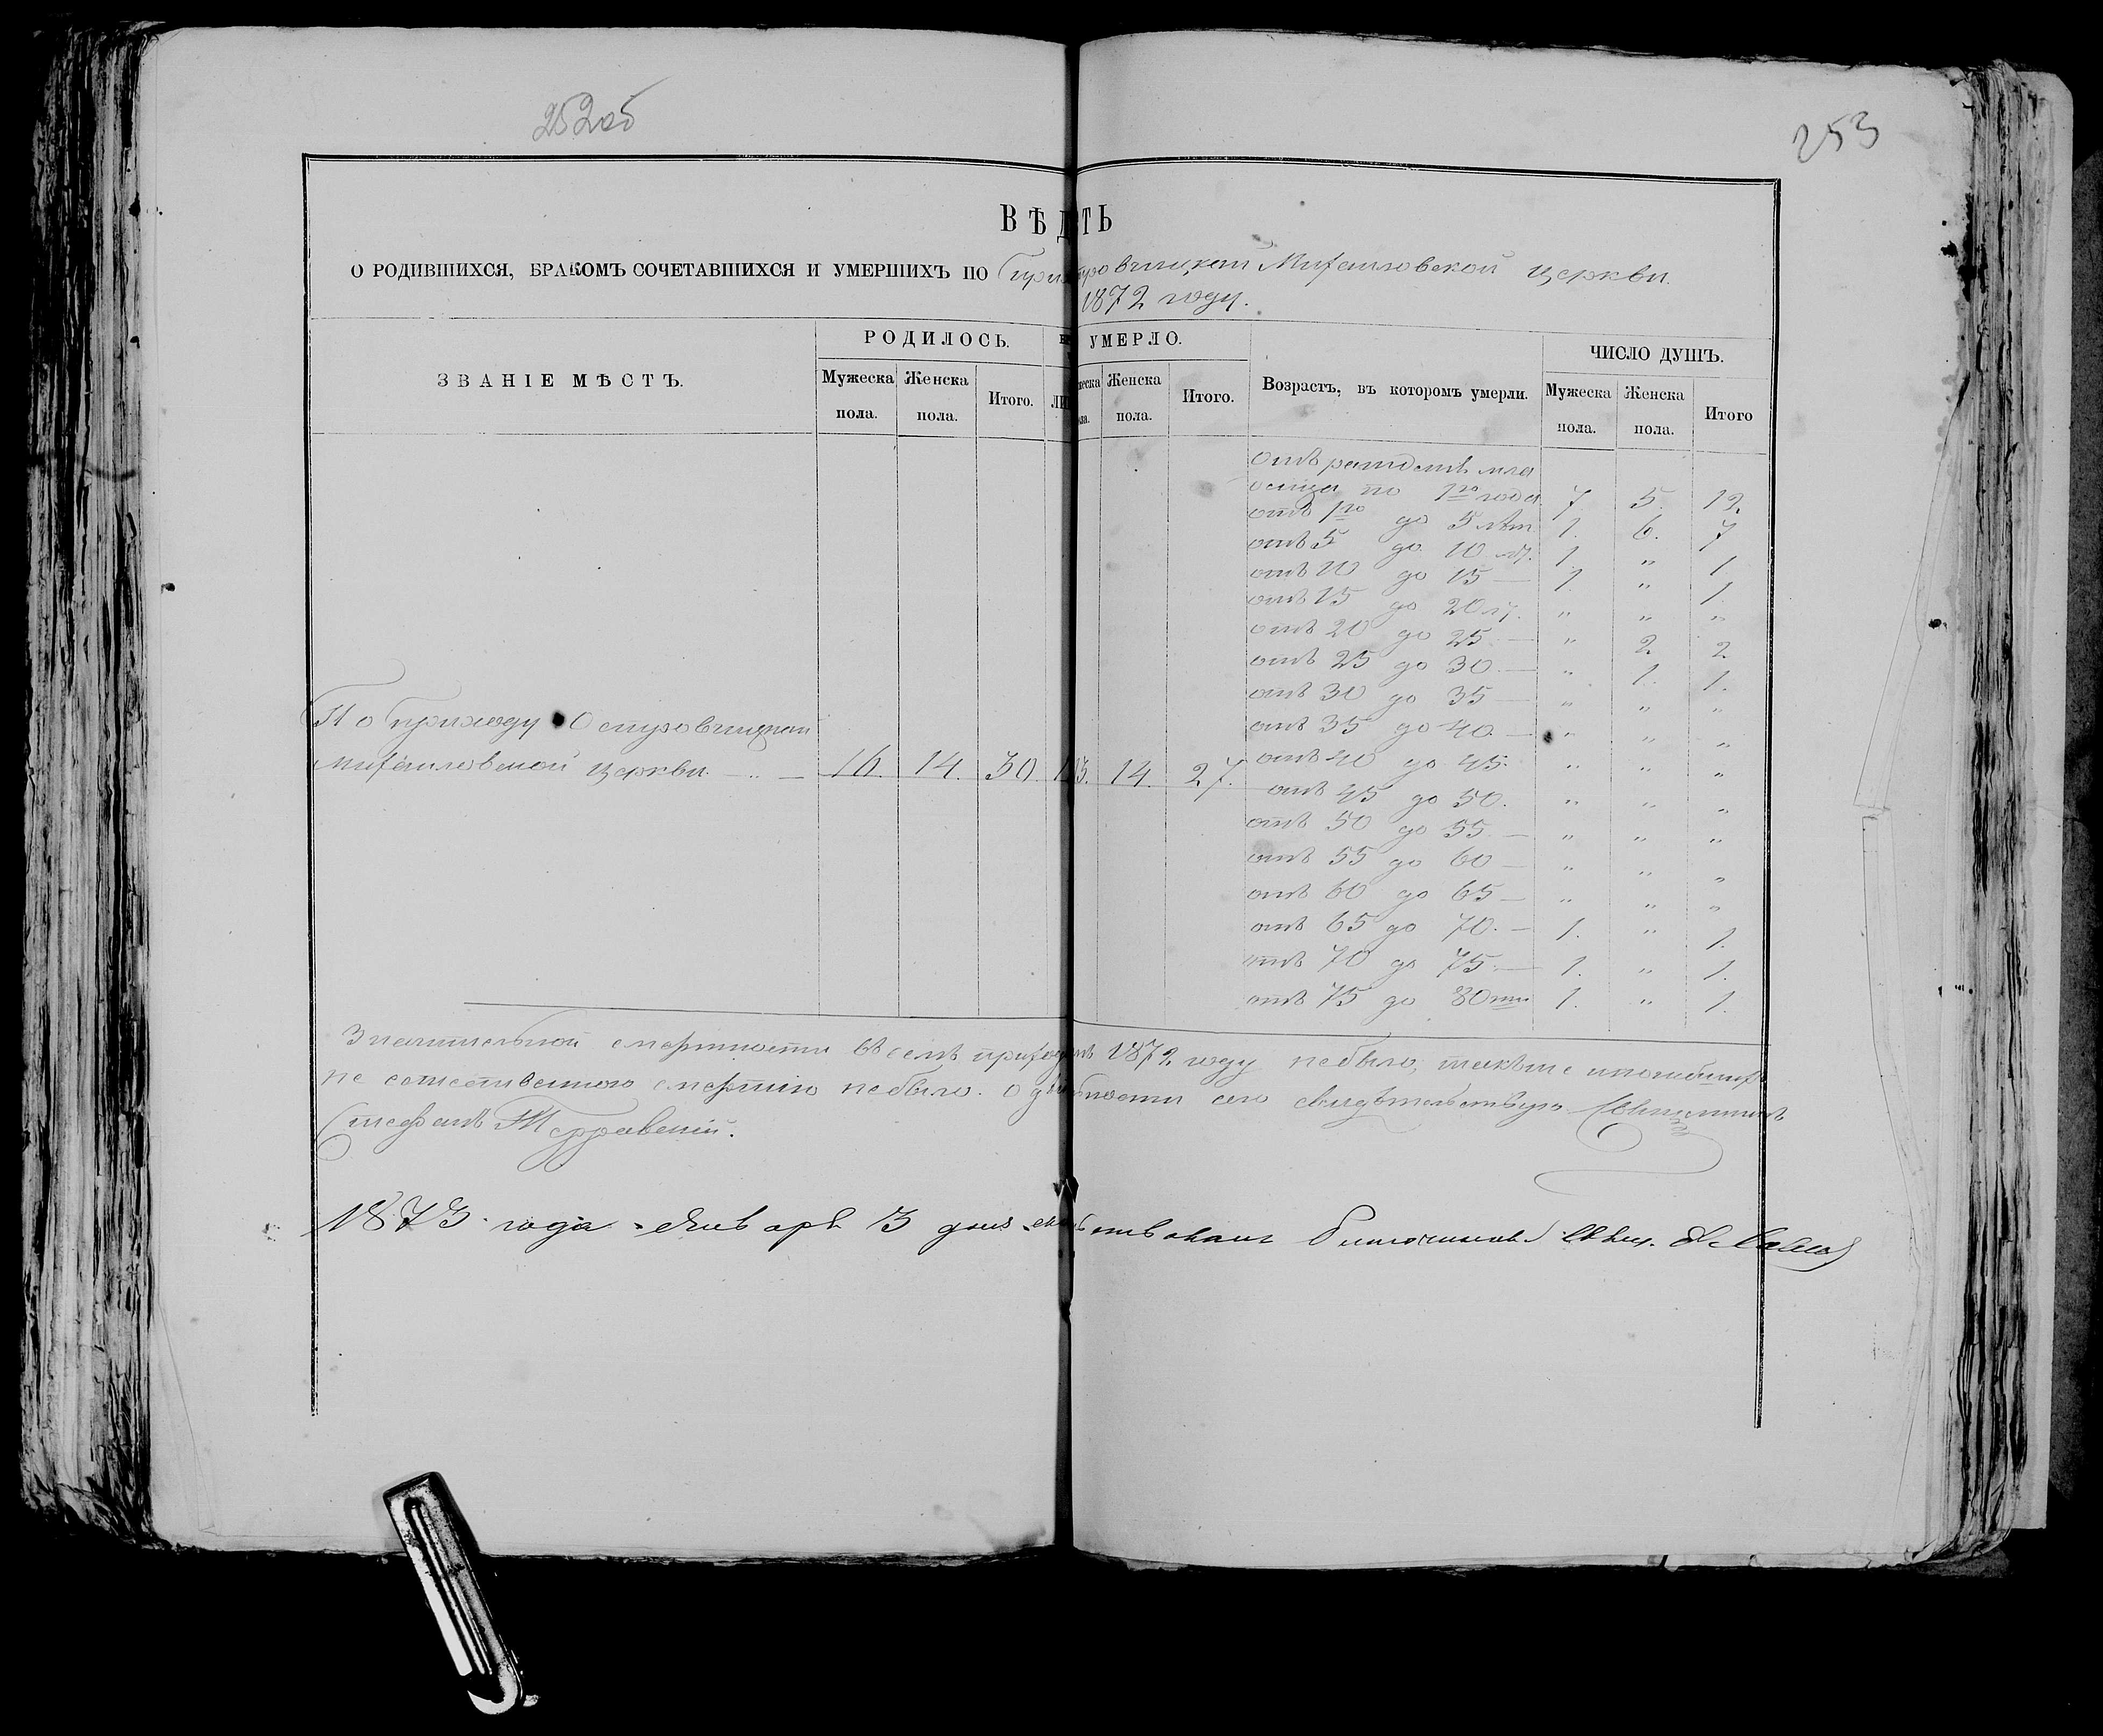 252об
253
ВѢД ТЬ
О РОДИВШИХСЯ, БРАКОМЪ СОЧЕТАВШИХСЯ И УМЕРШИХЪ ПО Михаиловской церкви
1872 году.
ЗВАНІЕ МѢСТЪ.
РОДИЛОСЬ.
УМЕРЛО.
Возрастъ, въ которомъ умерли.
ЧИСЛО ДУШЪ.
Мужеска пола.
Женска пола.
Итого.
Женска пола.
Итого.
Мужеска пола.
Женска пола.
Итого
отъ мла
по 1го года 7 5. 12.
отъ 1го до 5 лѣт 1. 6. 7
отъ 5 до 10 1. " 1
отъ 10 до 15 — 1. " 1.
отъ 15 до 20 " " "
отъ 20 до 25 — " 2 2
отъ 25 до 30 — " 1. 1.
отъ 30 до 35 — " " "
отъ 35 до 40 — " " "
По приходу Островчицкой
Михаиловской церкви — 16. 14. 30. 13. 14. 27.
отъ 40 до 45. " " "
отъ 45 до 50. " " "
отъ 50 до 55 — " " "
отъ 55 до 60 — " " "
отъ 60 до 65 — " " "
отъ 65 до 70. — 1. " 1.
отъ 70 до 75 — 1. " 1.
отъ 75 до 80 1. " 1.
Значительной смертности въ семъ 1872 году небыло,
смертію небыло. о сего свидѣтельствую Священникъ
Стефанъ
1873 года Январь 3 дня Благочинный Свящ.